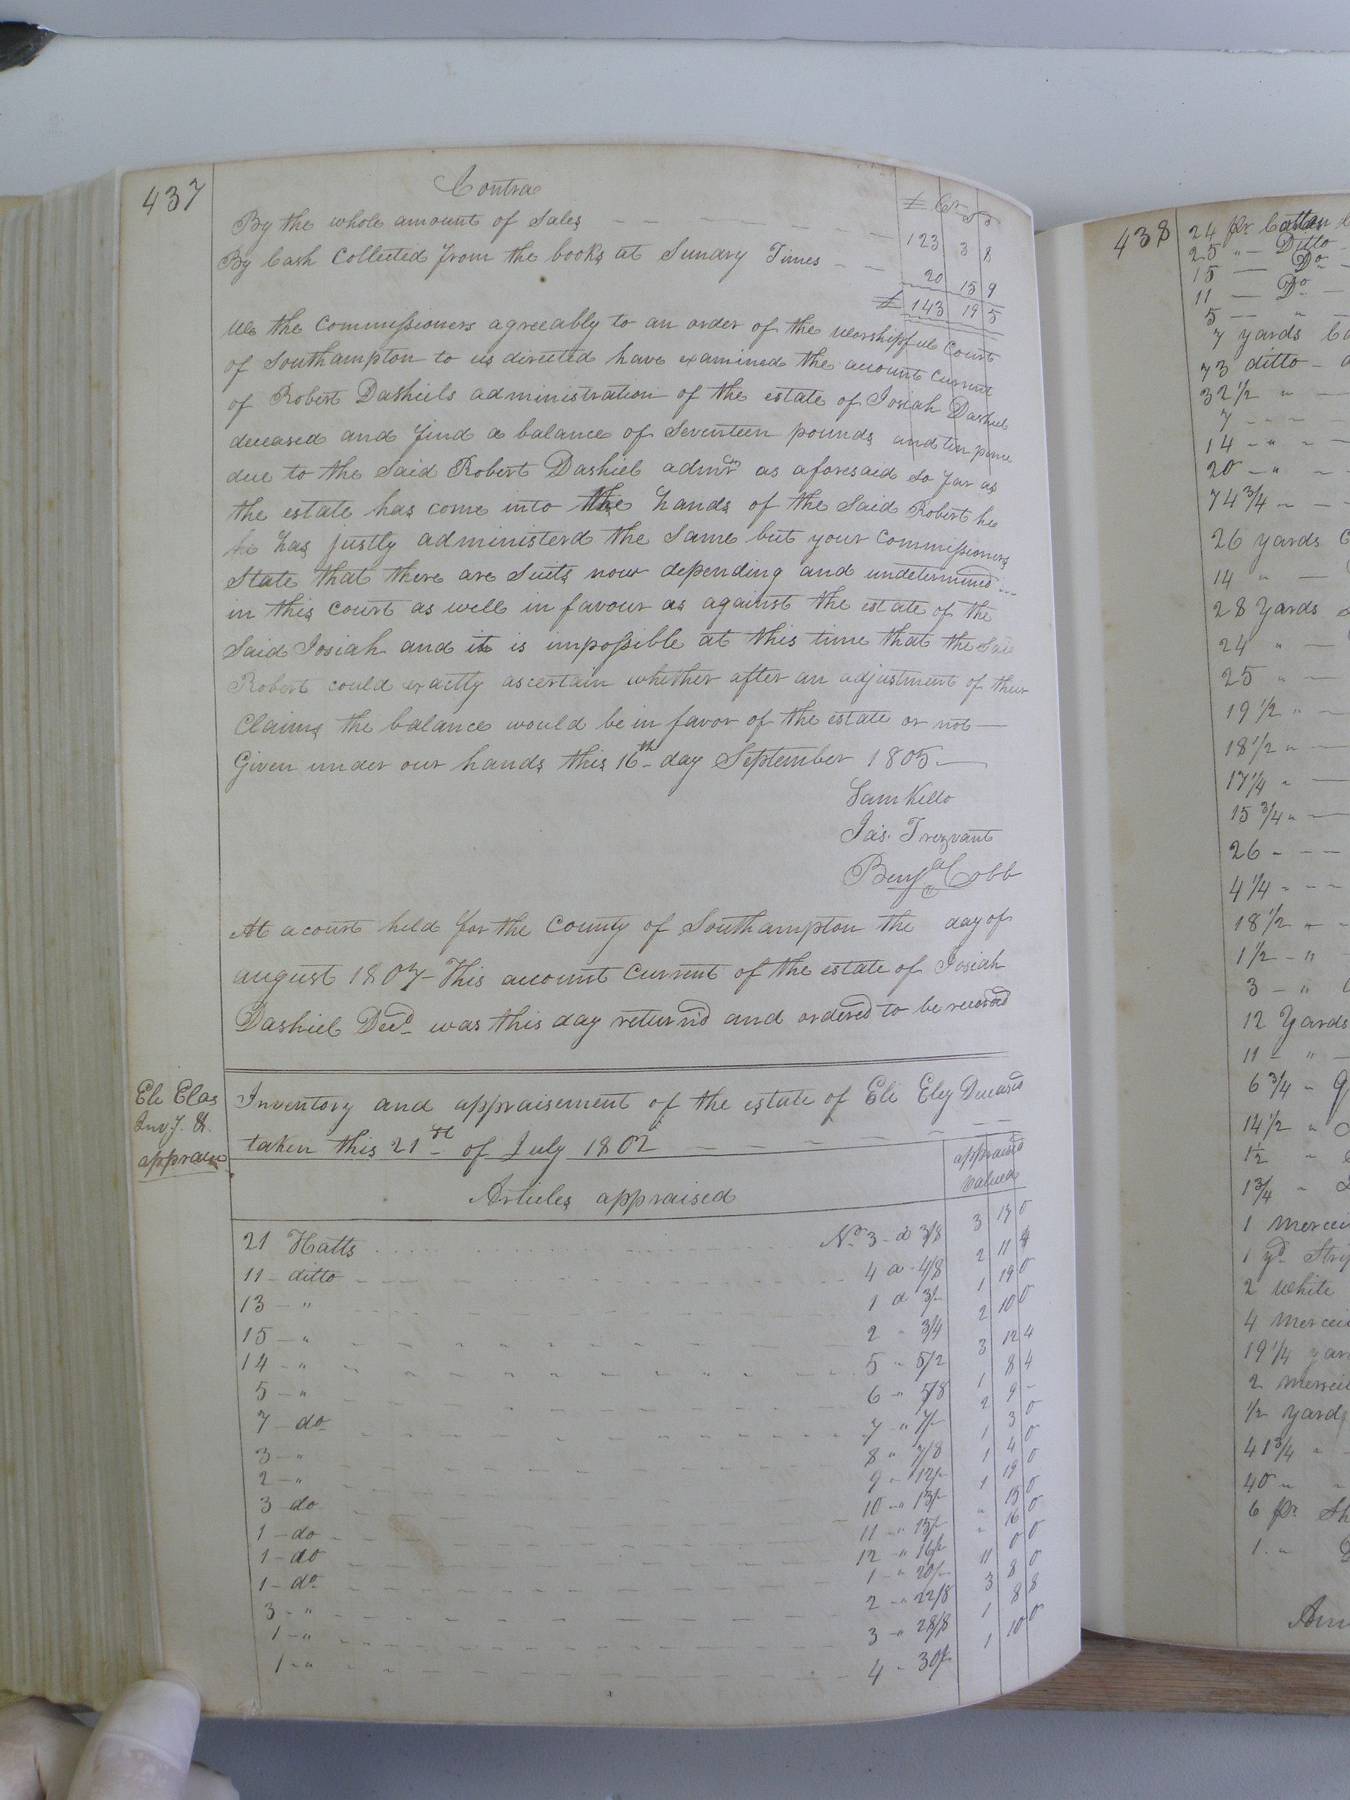 437
Contra
£ Cr S D
By the whole amount of Sales 123 3 8
By Cash Collected from the books at Sundry Times 20 15 9
£ 143 19 5
We the Commissioners agreeably to an order of the Worshipful Court
of Southampton to us directed have examined the account Current
of Robert Dashiels administration of the estate of Josiah Dashiel
deceased and find a balance of Seventeen pounds and ten pence
due to the Said Robert Dashiel admr as aforesaid So far as
the estate has come into the hands of the Said Robert he
he has justly administerd the Same but your Commissioners
State that there are Suits now depending and undetermined
in this Court as well in favour as against the estate of the
Said Josiah and it is impossible at this time that the Said
Robert could exactly ascertain whether after an adjustment of their
Claims the balance would be in favor of the estate or not
Given under our hands this 16th day September 1805
Sam Kello
Jas. Trezvant
Benja Cobb
At a court held for the County of Southampton the day of
august 1807 This account Current of the estate of Josiah
Dashiel Decd was this day returnd and ordered to be recorded
Eli Elas
Invy. &
apprais
Inventory and appraisement of the estate of Eli Eley Deceased
taken this 21st of July 1802
Articles appraised
appraised
Valued
21 Hatts No 3 a 3/8 3 17 0
11 ditto 4 a 4/8 2 11 4
13 " 1 a 3/- 1 19 0
15 " 2 " 3/4 2 10 0
14 " 5 " 5/2 3 12 4
5 " 6 " 5/8 1 8 4
7 do 7 " 7/- 2 9 -
3 " 8 " 7/8 1 3 0
2 " 9 " 12/- 1 4 0
3 do 10 " 13/- 1 19 0
1 do 11 " 15/- " 15 0
1 do 12 " 16/- " 16 0
1 do 1 " 20/- 1 0 0
3 " 2 " 22/8 3 8 0
1 " 3 " 28/8 1 8 8
1 " 4 " 30/- 1 10 0
438
24 pr Cotton
25 " Ditto
15 Do
11 Do
5 "
7 yards
73 ditto
32 1/2 "
7
14 "
20 "
74 3/4 "
26 yards
14 "
28 Yards
24 "
25 "
19 1/2 "
18 1/2 "
17 1/4 "
15 3/4 "
26 "
4 1/4 "
18 1/2 "
1 1/2 "
3 "
12 Yards
11 "
6 3/4 "
14 1/2 "
1 1/2 "
1 3/4 "
1
1 yd
2 White
4
19 1/4
2
1/2 yard
41 3/4 "
40 "
6 pr
1 "